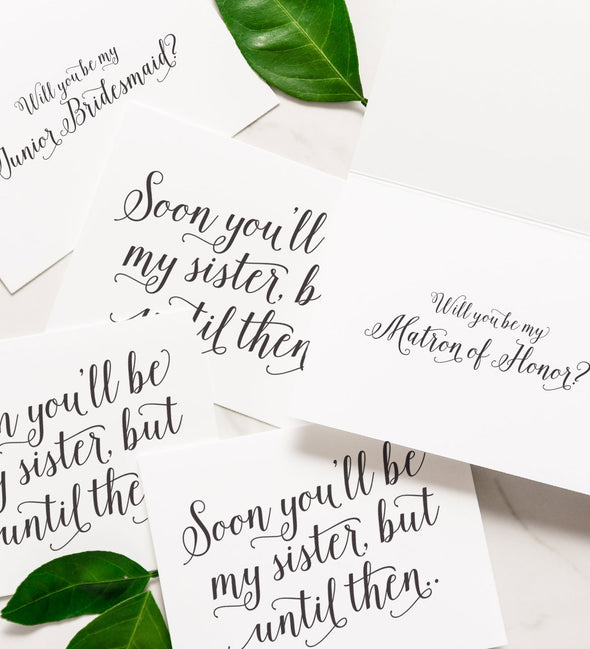 Will you be my
Junior Bridesmaid?
Soon you'll
my sister, b
until then
Will you be my
Matron of Honor?
n you'll be
y sister, but
until the
Soon you'll be
my sister, but
until then..